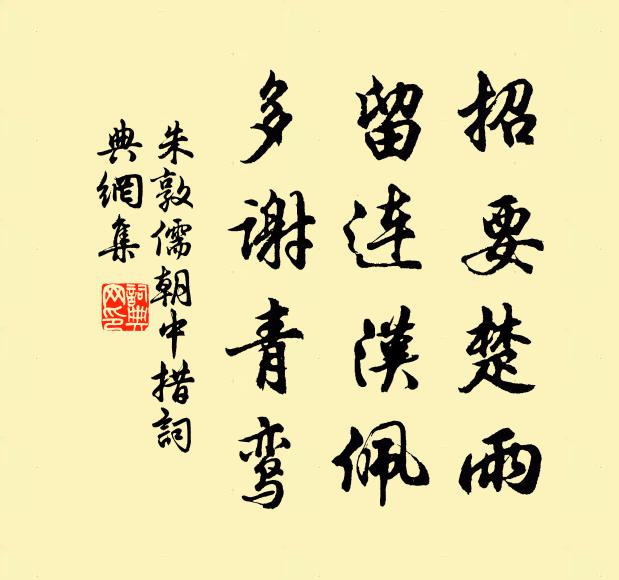 招要楚雨
留连漢佩
多谢青鸾
朱敦儒朝中措詞
典網集
詞典网印